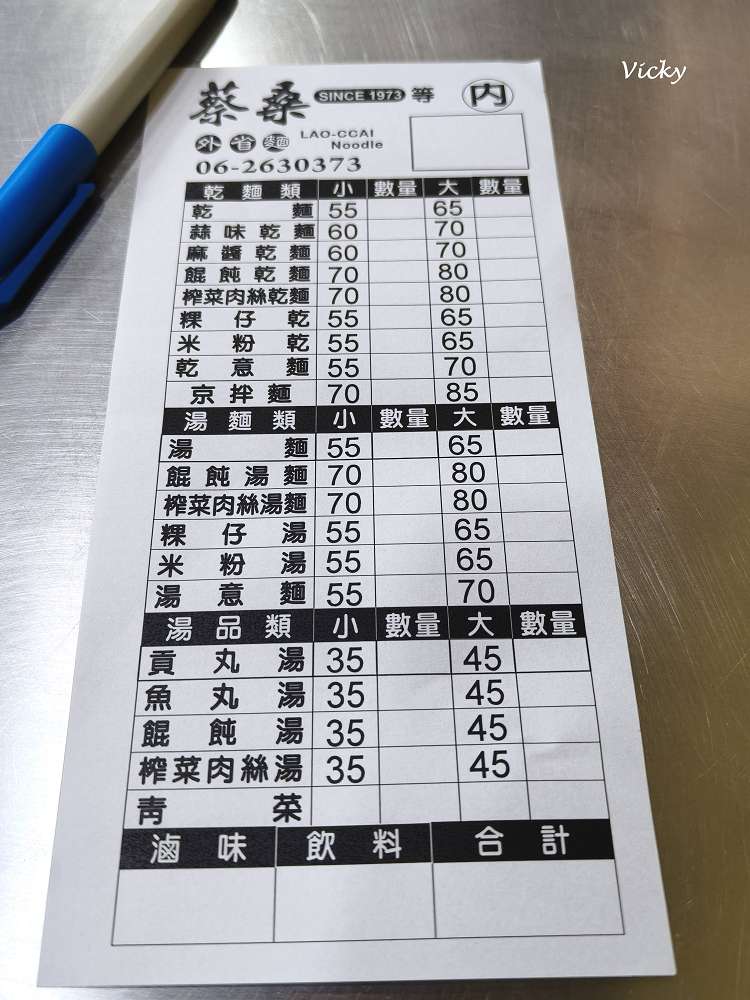 Vicky
蔡桑 SINCE 1973 等 內
外省麵 LAO-CCAI Noodle
06-2630373
乾麵類 小 數量 大 數量
乾麵 55 65
蒜味乾麵 60 70
麻醬乾麵 60 70
餛飩乾麵 70 80
榨菜肉絲乾麵 70 80
粿仔乾 55 65
米粉乾 55 65
乾意麵 55 70
京拌麵 70 85
湯麵類 小 數量 大 數量
湯麵 55 65
餛飩湯麵 70 80
榨菜肉絲湯麵 70 80
粿仔湯 55 65
米粉湯 55 65
湯意麵 55 70
湯品類 小 數量 大 數量
貢丸湯 35 45
魚丸湯 35 45
餛飩湯 35 45
榨菜肉絲湯 35 45
青菜
滷味 飲料 合計